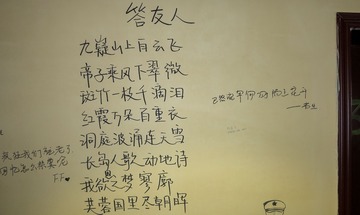 答友人
九嶷山上白云飞
帝子乘风下翠微
斑竹一枝千滴泪
红霞万朵百重衣
洞庭波涌连天雪
长岛人歌动地诗
我欲因之梦寥廓
芙蓉国里尽朝晖